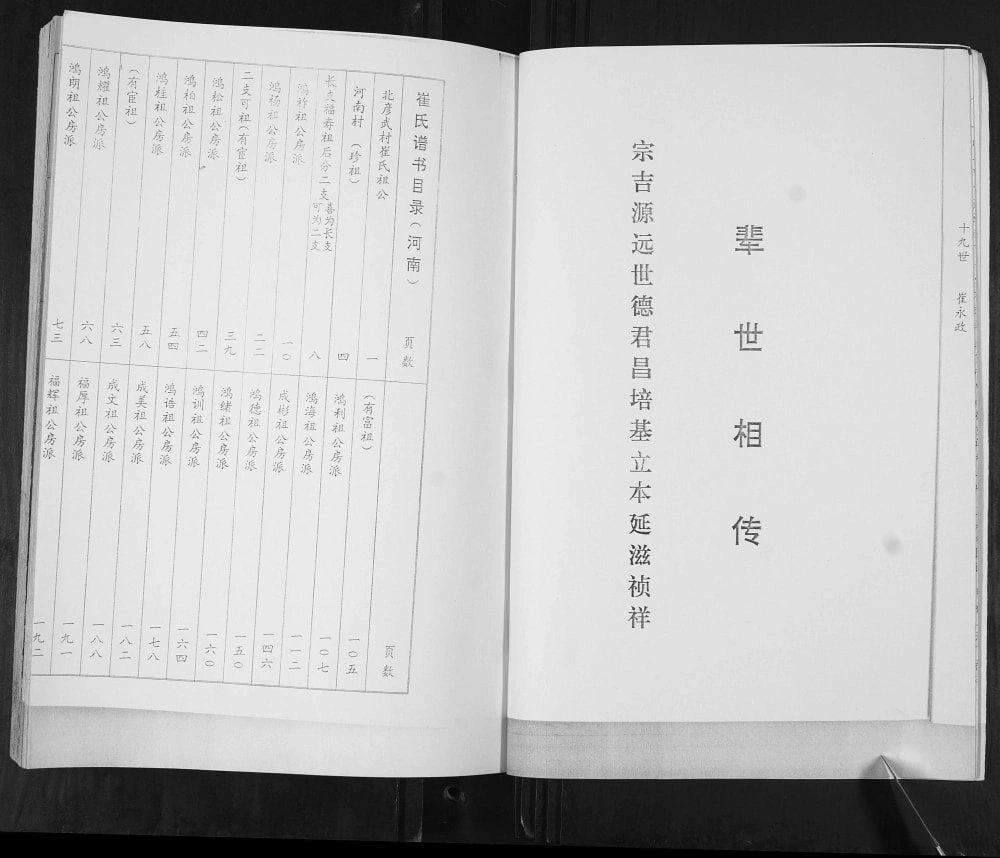 十九世 崔永政
辈世相传
宗吉源远世德君昌培基立本延滋祯祥
崔氏谱书目录(河南) 页数
北彦武村崔氏祖公 一
河南村(珍祖) 四
长支福寿祖后分二支 喜为长支 可为二支 八
鸿 祖公房派 一〇
鸿杨祖公房派 二二
二支可祖(有宦祖) 三九
鸿松祖公房派 四二
鸿柏祖公房派 五四
鸿桂祖公房派 五八
(有宦祖) 六三
鸿耀祖公房派 六八
鸿朗祖公房派 七三
页数
(有富祖) 一〇五
鸿利祖公房派 一〇七
鸿海祖公房派 一一二
成彬祖公房派 一四六
鸿德祖公房派 一五〇
鸿绪祖公房派 一六〇
鸿训祖公房派 一六四
鸿诰祖公房派 一七八
成美祖公房派 一八二
成文祖公房派 一八八
福厚祖公房派 一九一
福辉祖公房派 一九二